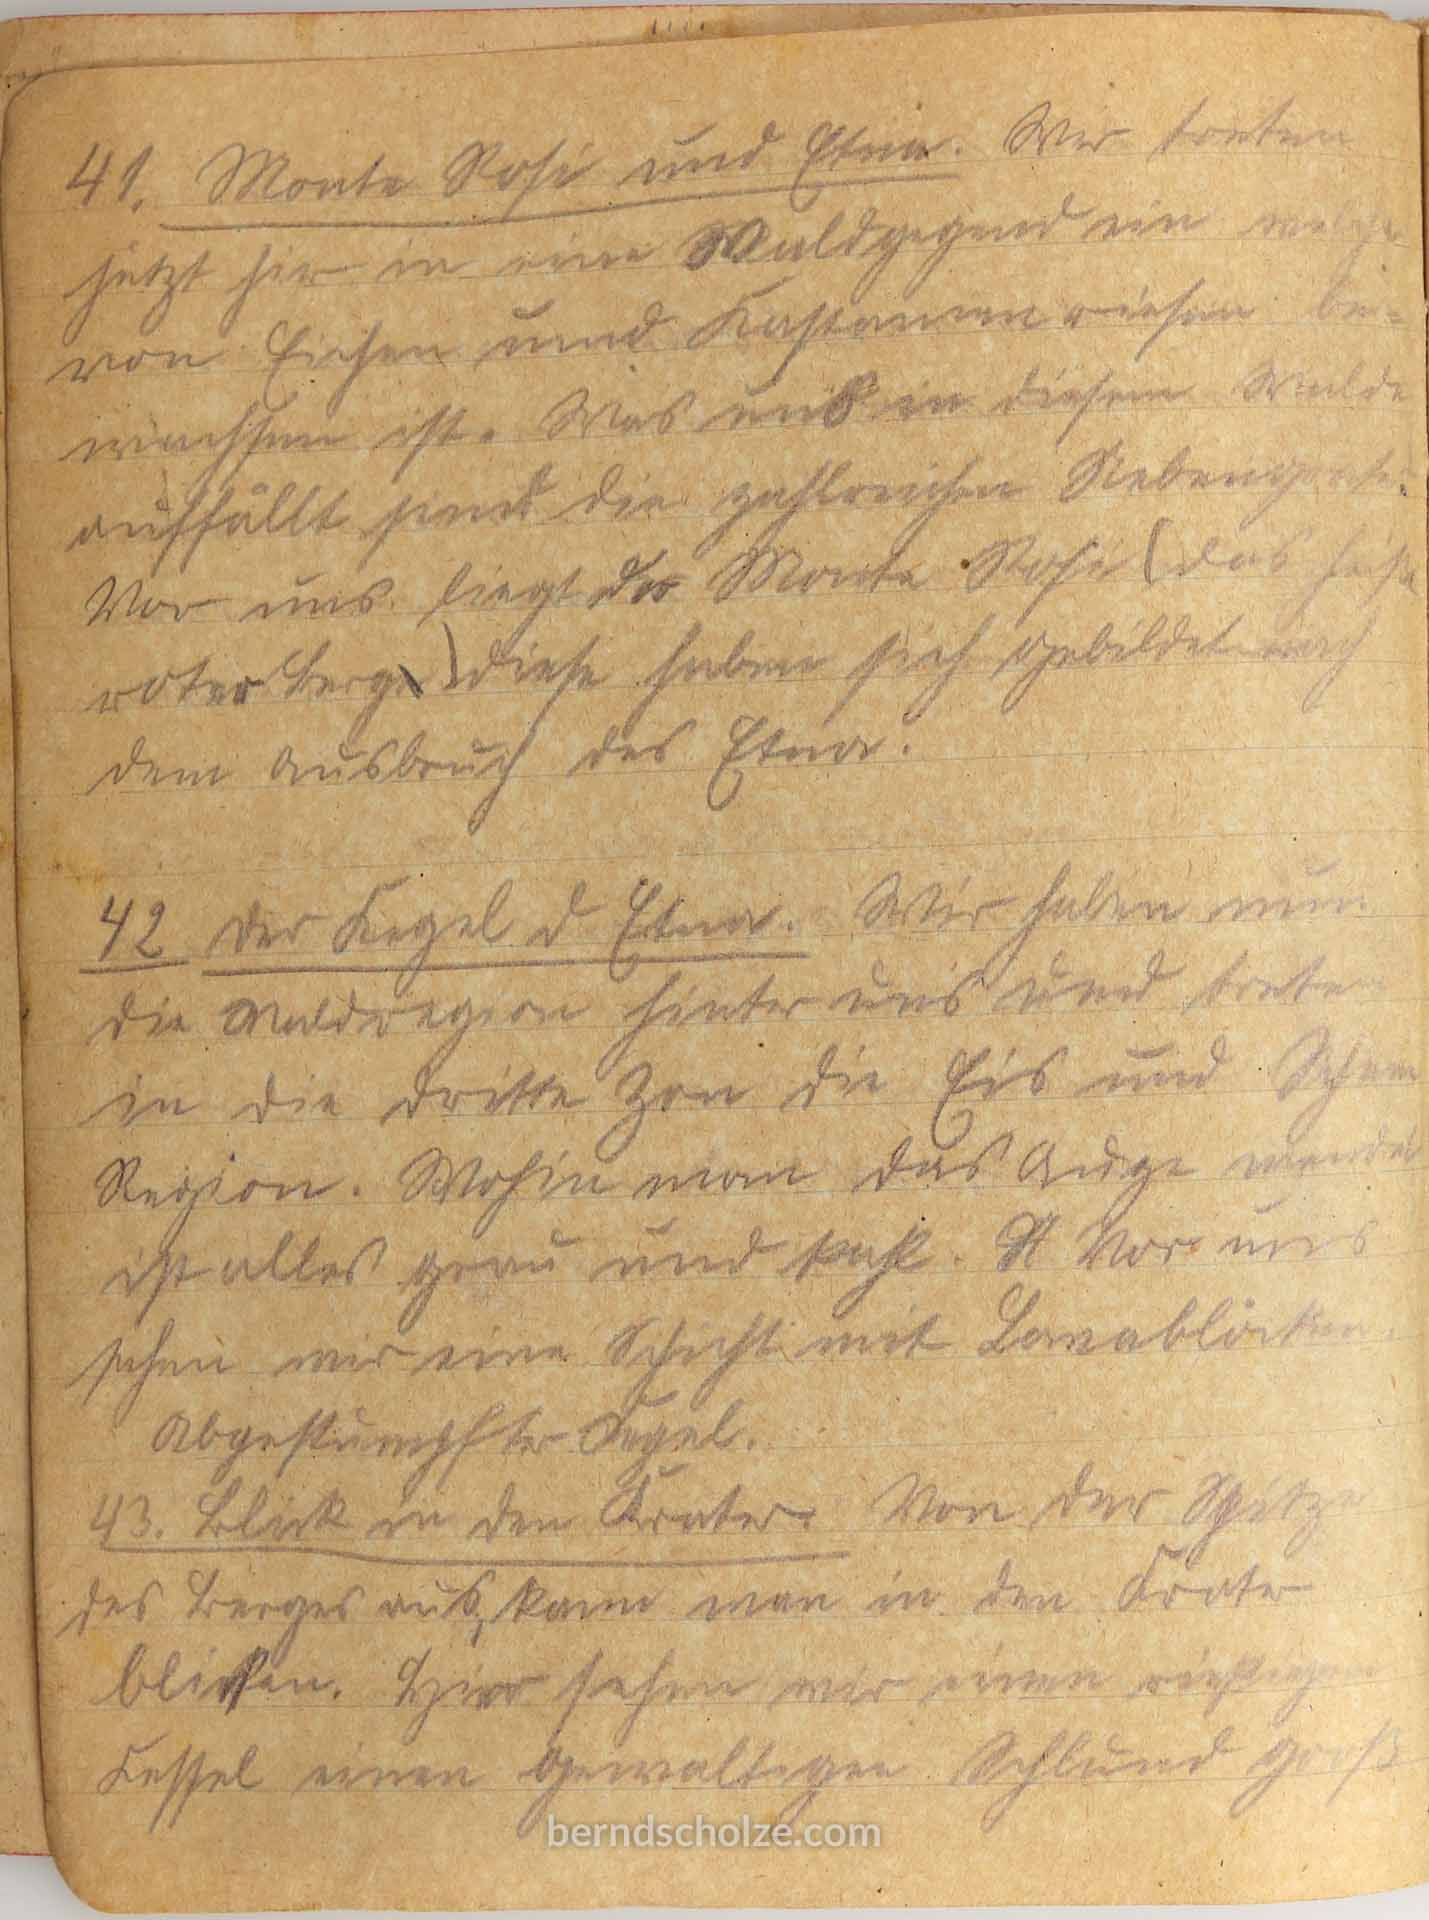 41. Monte Rosi und Etna. Wir treten
jetzt hir in eine Waldgegend ein welche
von Eichen und Kastanienriesen be-
wachsen ist. Was uns in diesem Walde
auffällt sind die zahlreichen
Vor uns liegt der Monte Rosi (das heist
roter Berg) diese haben sich gebildet nach
dem Ausbruch des Etna.
42 Der Kegel d Etna. Wir haben nun
die Waldregion hinter uns und treten
in die dritte Zon die Eis und Schnee
Region. Wohin man das Auge wendet
ist alles grau und kahl. Vor uns
sehen wir eine Schicht mit Lavablöcken.
Abgestumpfter Kegel.
43. Blick in den Krater. Von der Spitze
des Berges aus, kann man in den Krater
blicken. Hier sehen wir einen riesigen
Kessel einen gewaltigen Schlund groß
berndscholze.com